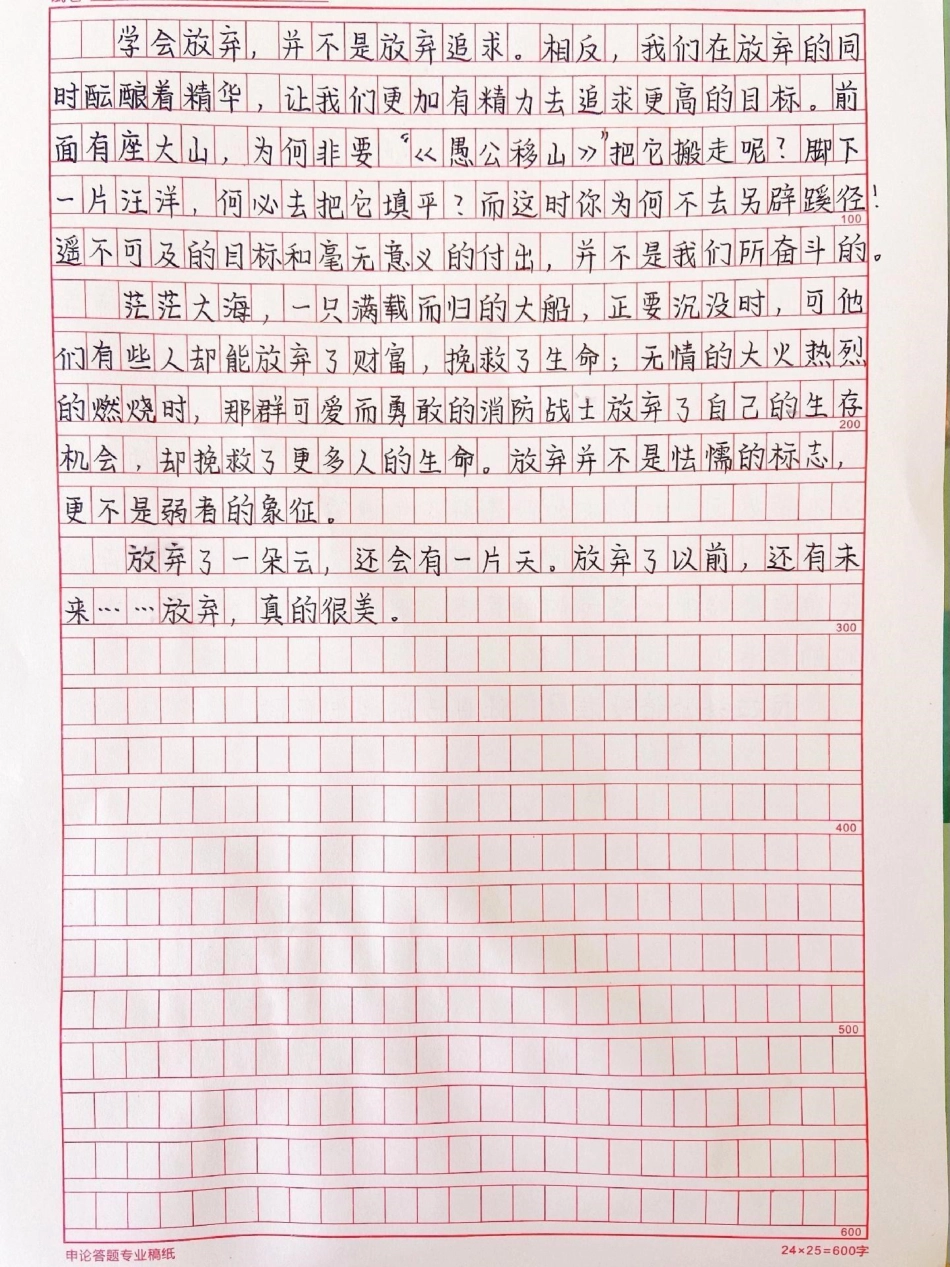 学会放弃，并不是放弃追求。相反，我们在放弃的同
时酝酿着精华，让我们更加有精力去追求更高的目标。前
面有座大山，为何非要“《愚公移山》”把它搬走呢？脚下
一片汪洋，何必去把它填平？而这时你为何不去另辟蹊径！
100
遥不可及的目标和毫无意义的付出，并不是我们所奋斗的。
茫茫大海，一只满载而归的大船，正要沉没时，可他
们有些人却能放弃了财富，挽救了生命；无情的大火热烈
的燃烧时，那群可爱而勇敢的消防战士放弃了自己的生存
200
机会，却挽救了更多人的生命。放弃并不是怯懦的标志，
更不是弱者的象征。
放弃了一朵云，还会有一片天。放弃了以前，还有未
来……放弃，真的很美。
300
400
500
600
申论答题专业稿纸
24×25=600字